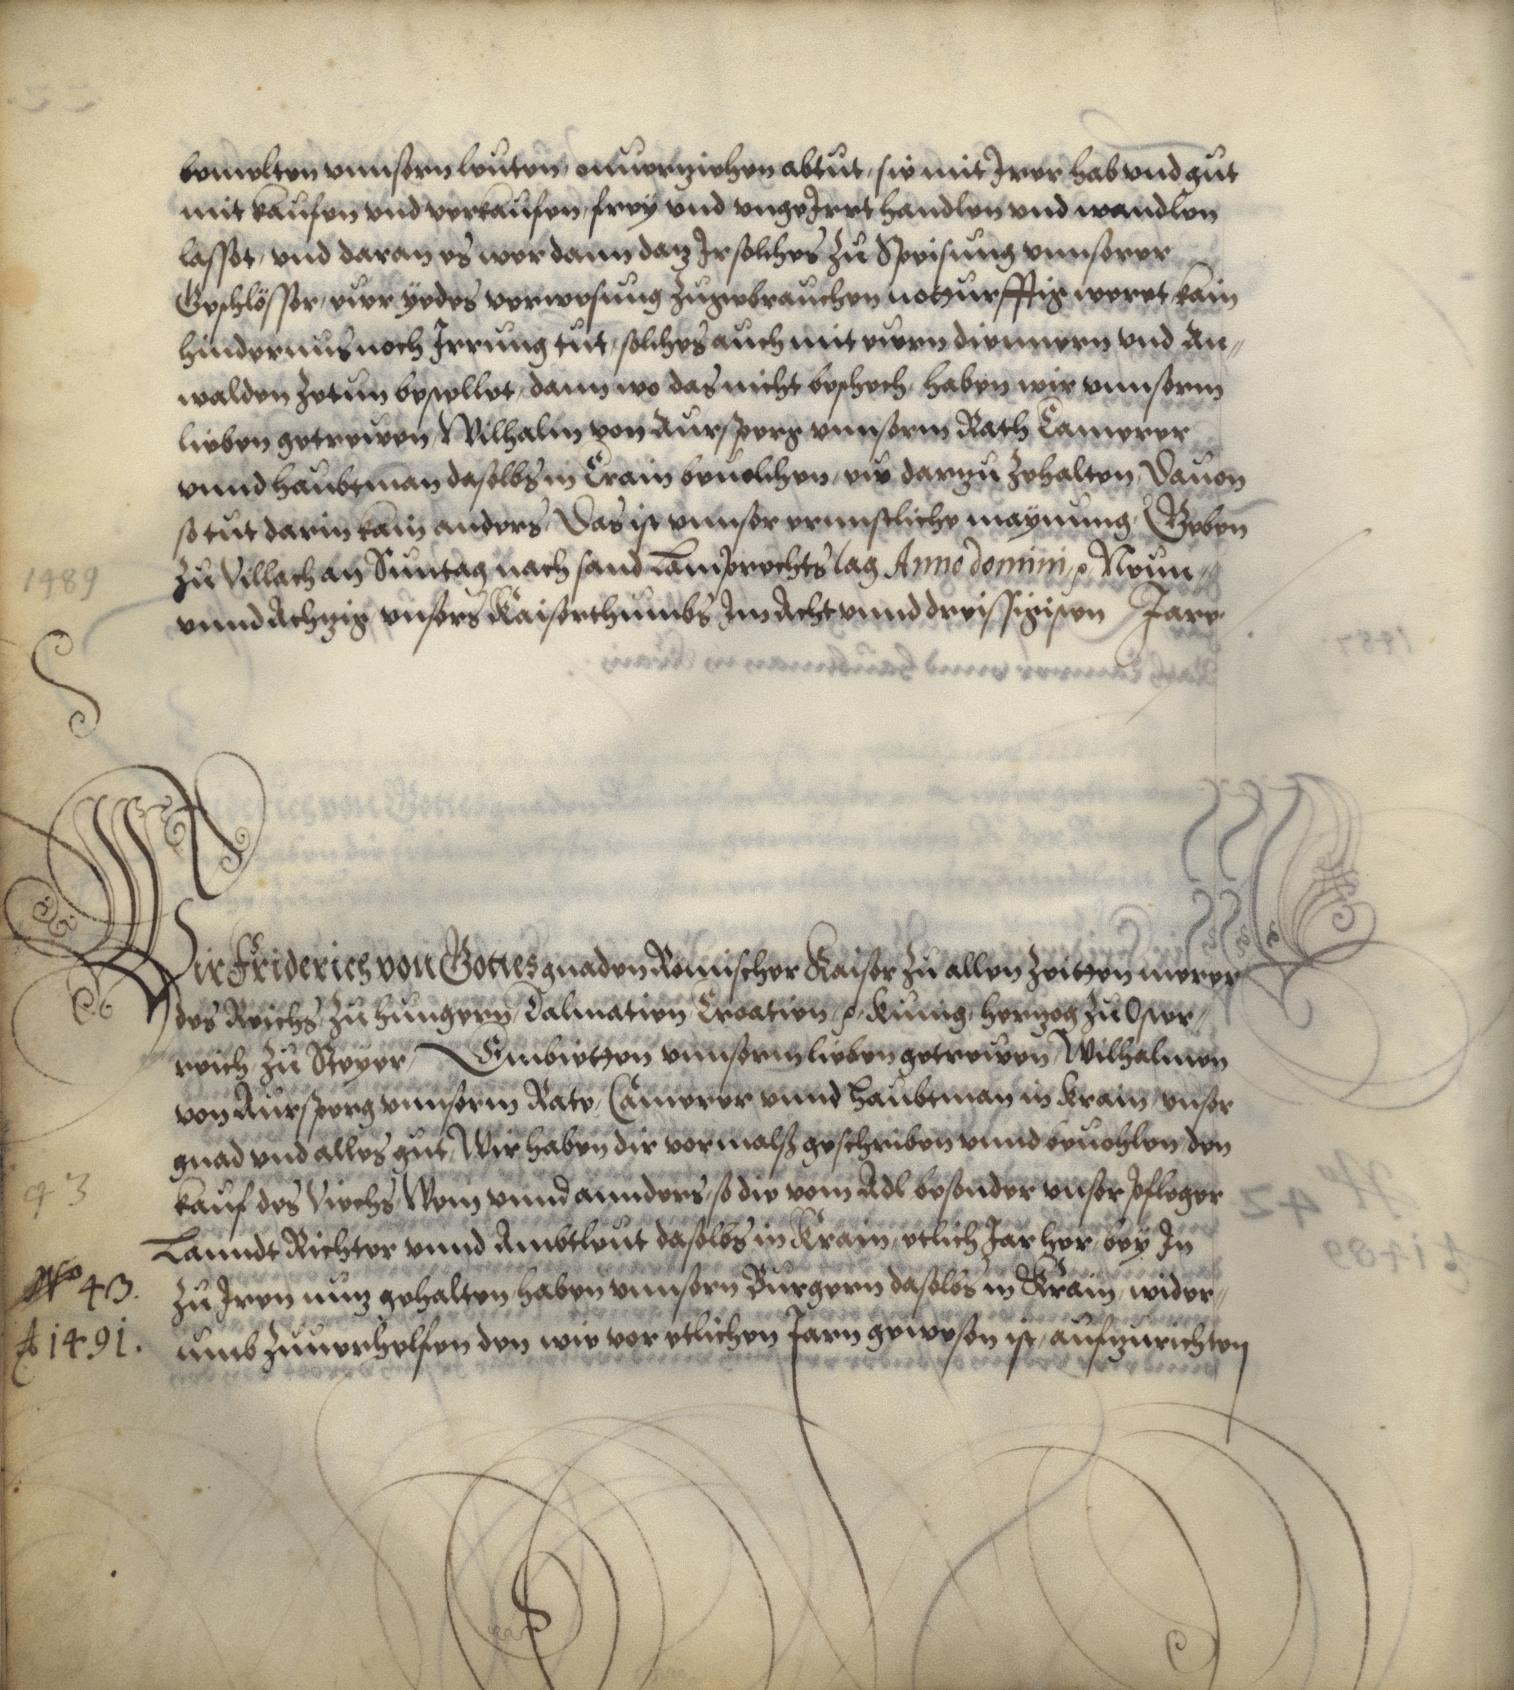 bemelten vnnsern leuten, on uerziehen abtut, sie mit Irer hab vnd gut
mit kaufen vnd verkaufen, frey vnd vngeJrrt handlen vnd wandlen
lasset, vnd daran es wer dann daz Ir solches Zu Speisung vnnserer
Geschlösser, ewer yedes verwesung Zugebrauchen notturfftig weret kain
hindernus noch Irrung tut, solches auch mit ewern diennern vnd An„
walden Zetun bestellet, dann wo das nicht beschech, haben wir vnnserm
lieben getrewen, Wilhalm von Aursperg vnnserm Rath Camerer
vnnd haubtman daselbs in Crain beuolchen, eüe darzu Zehalten, Dauon
so tut darin kain anders, Das ist vnnser ernnstliche maynung, Geben
Zu Villach an Suntag nach sand Lamprechts tag Anno domini, Neun„
vnnd Achzig vnsers Kaiserthumbs Im Acht vnnd dreissigisten Jare
1489
Wir Friderich von Gottes gnaden Römischer Kaiser Zu allen Zeitten merer
des Reichs, Zu hungern, Dalmatien, Croatien, Kunig, hertzog Zu Oster„
reich, Zu Steyer, Embietten vnnserm lieben getrewen, Wilhalmen
von Aursperg vnnserm Rate, Camerer vnnd haubtman in Krain, vnser
gnad vnd alles gut, Wir haben dir vormalß geschriben vnnd beuohlen, den
kauf des Viechs, Wein vnnd annders, so die vom Adl besonder vnser pfleger
Lanndt Richter vnnd Ambtleut daselbs in Krain, etlich Jar her, bey In
Zu Iren nuz gehalten, haben vnnsern Burgern daselbs in Krain, wider„
umb Zuuerhelfen den wie vor etlichen Jarn gewesen ist, aufzurichten
93
No 43.
A 1491.